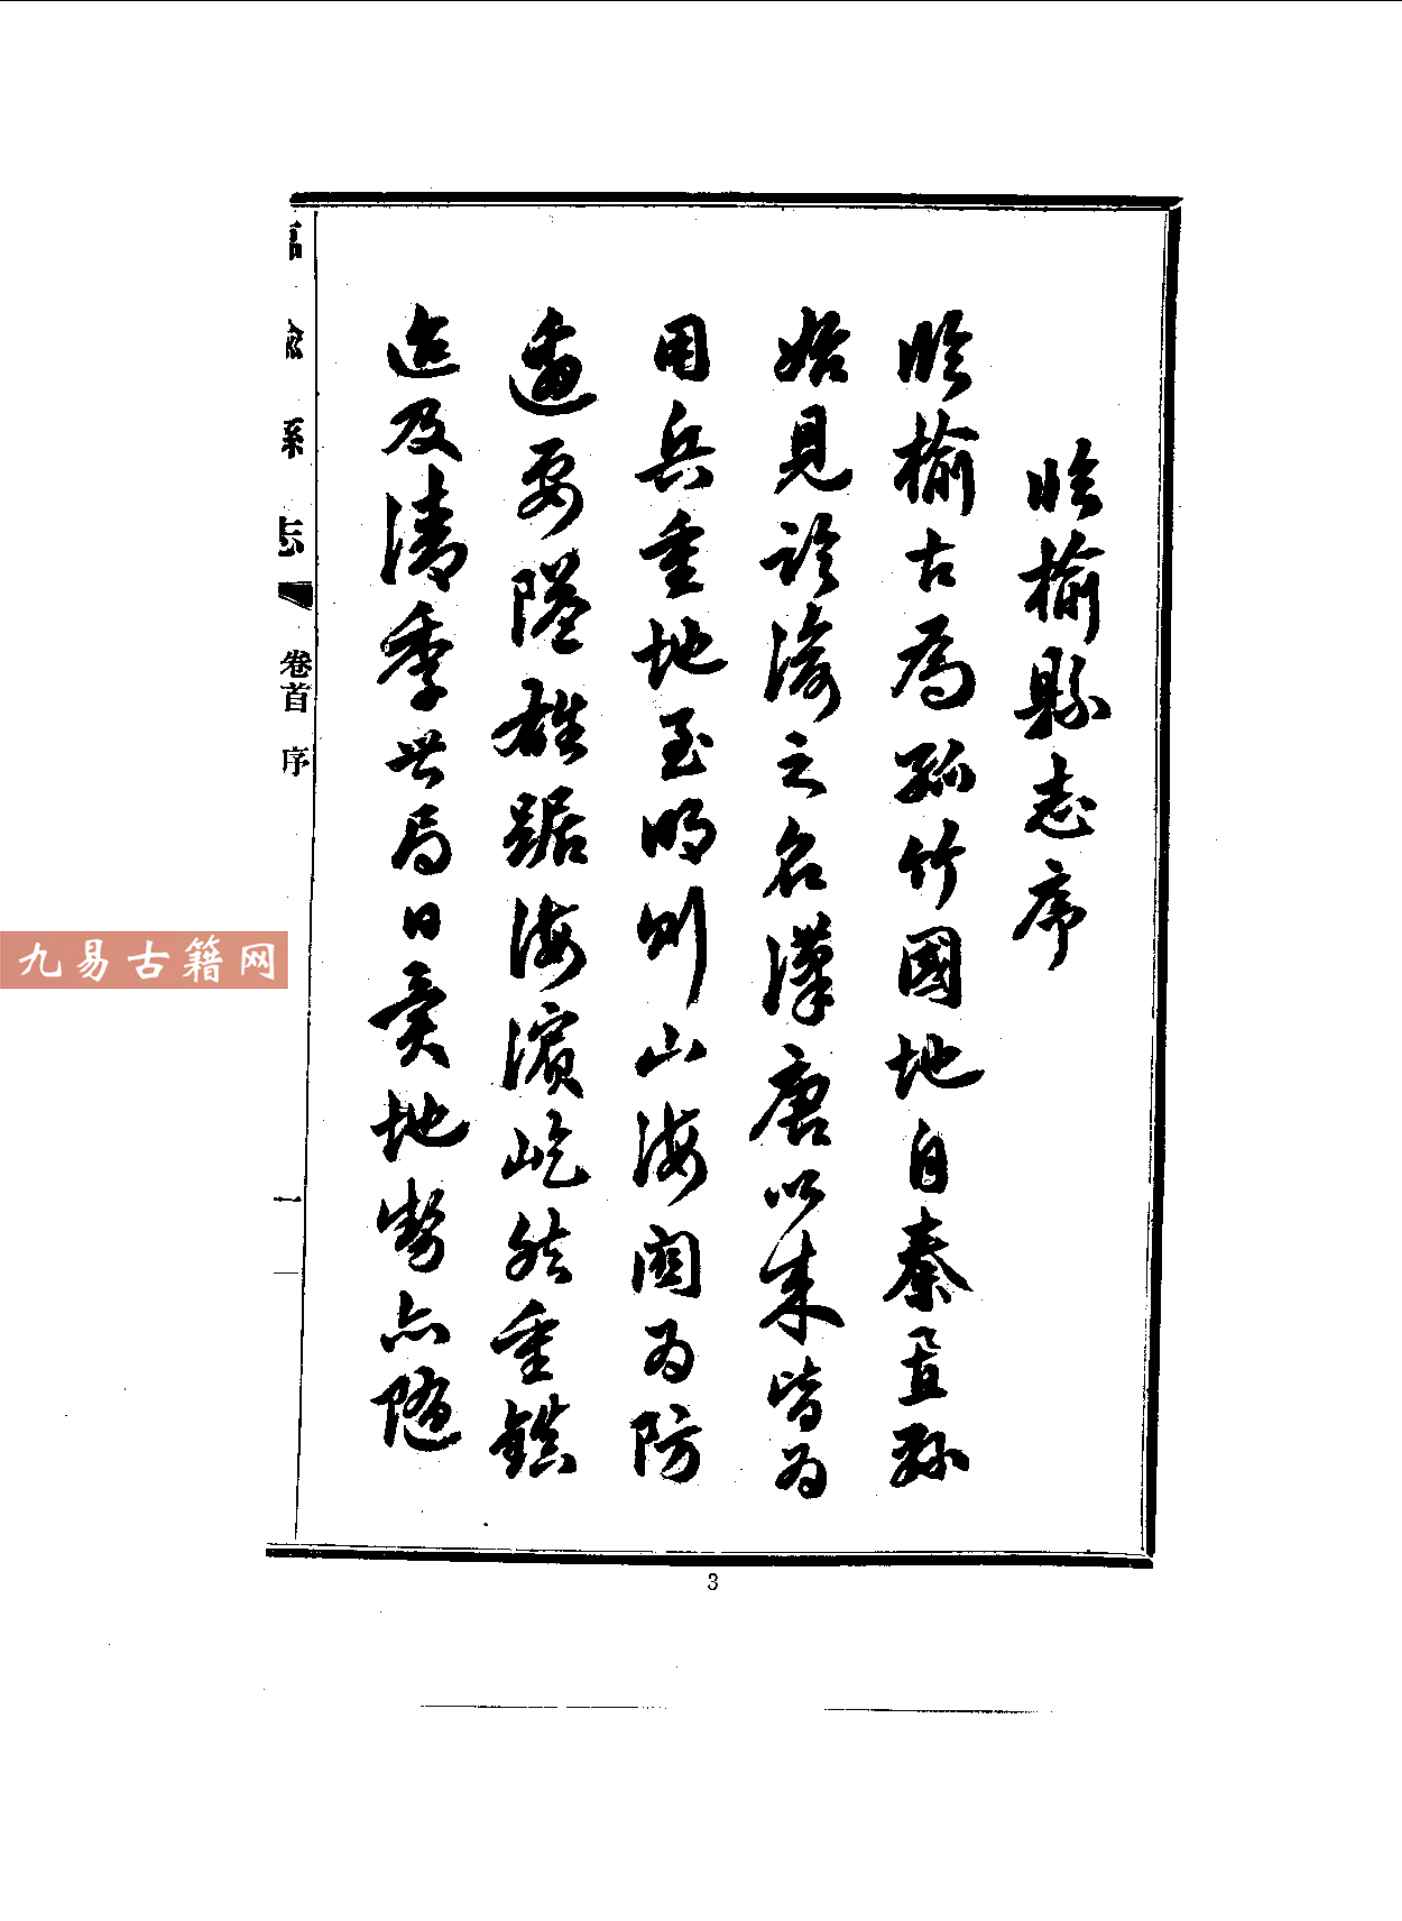 臨榆縣志序
臨榆古為孤竹國地自秦置縣
始見臨渝之名漢唐以來皆為
用兵重地至明則山海關為防
邊要隘雄踞海濱屹然重鎮
迨及清季世局日異地勢亦隨
臨榆縣志 卷首 序 一
3
九易古籍网